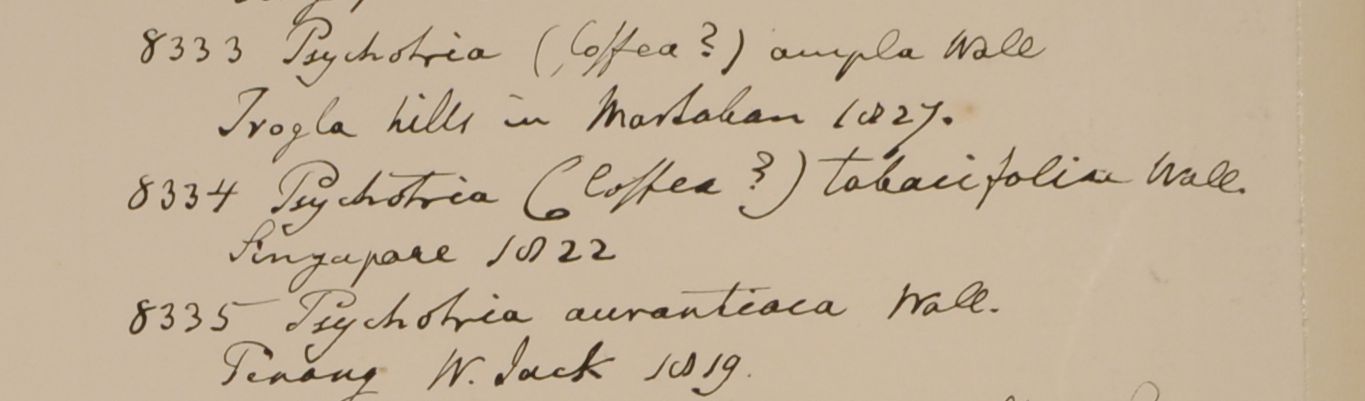 8333 Psychotria (Coffea?) ampla Wall
Trogla hills in Martaban 1827.
8334 Psychotria (Coffea?) tabacifolia Wall.
Singapore 1822
8335 Psychotria aurantiaca Wall.
Penang W. Jack 1819.